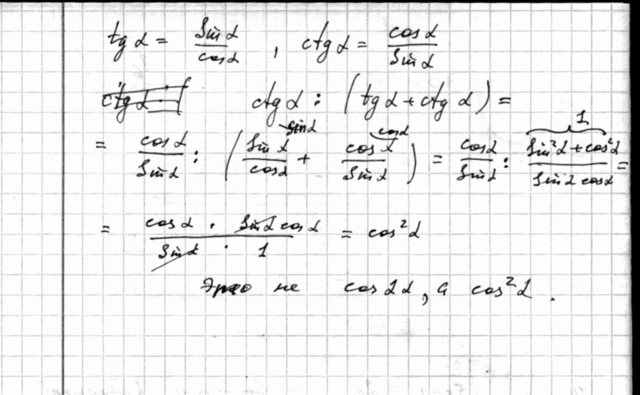 tg α = sin α / cos α , ctg α = cos α / sin α
ctg α : (tg α + ctg α) =
= cos α / sin α : (sin α / cos α + cos α / sin α) = cos α / sin α : (sin² α + cos² α) / (sin α cos α) =
= (cos α · sin α cos α) / (sin α · 1) = cos² α
Это не cos 2α, а cos² α.